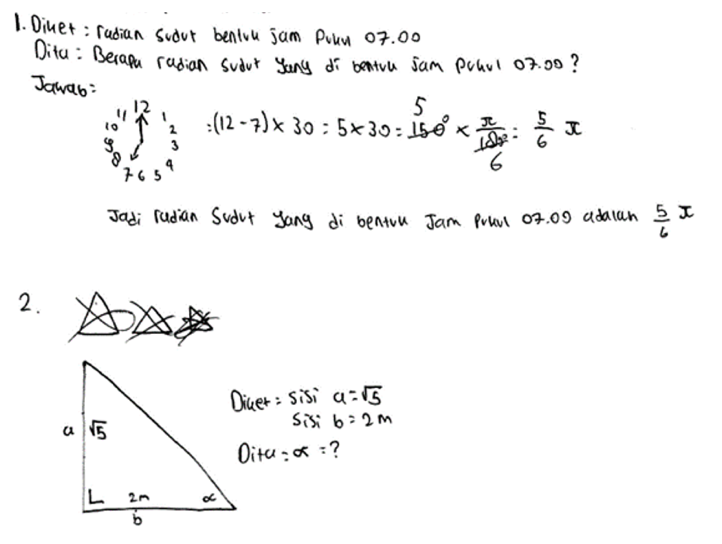 1. Diket : radian sudut bentuk jam Pukul 07.00
Dita : Berapa radian sudut yang di bentuk jam pukul 07.00 ?
Jawab :
12
11 1
10 2
9 3
8 4
7 6 5
: (12 - 7) × 30 = 5 × 30 = 150° × π/180° = 5/6 π
5
6
Jadi radian sudut yang di bentuk Jam pukul 07.00 adalah 5/6 π
2.
Diket = sisi a = √5
sisi b = 2m
Dita = α = ?
a √5
2m α
b